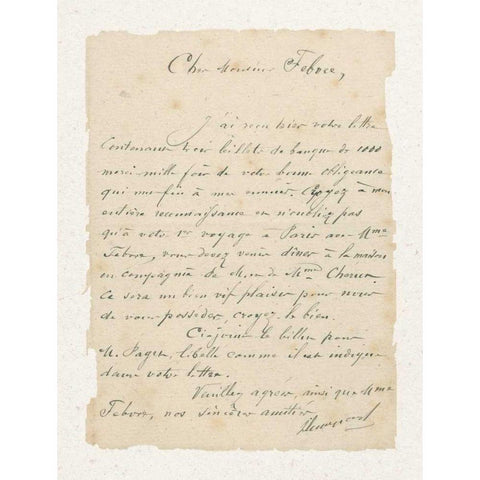 Cher Monsieur Febvre,
J'ai reçu hier votre lettre
contenant trois billets de banque de 1000
merci mille fois de votre bonne obligeance
qui met fin à mes ennuis. Croyez à mon
entière reconnaissance et n'oubliez pas
qu'à votre 1er voyage à Paris avec Mme
Febvre, vous devez venir dîner à la maison
en compagnie de M. et de Mme
ce sera un bien vif plaisir pour nous
de vous posséder, croyez le bien.
Ci-joint le billet pour
M. libellé comme il est indiqué
dans votre lettre.
Veuillez agréer, ainsi que Mme
Febvre, nos sincères amitiés